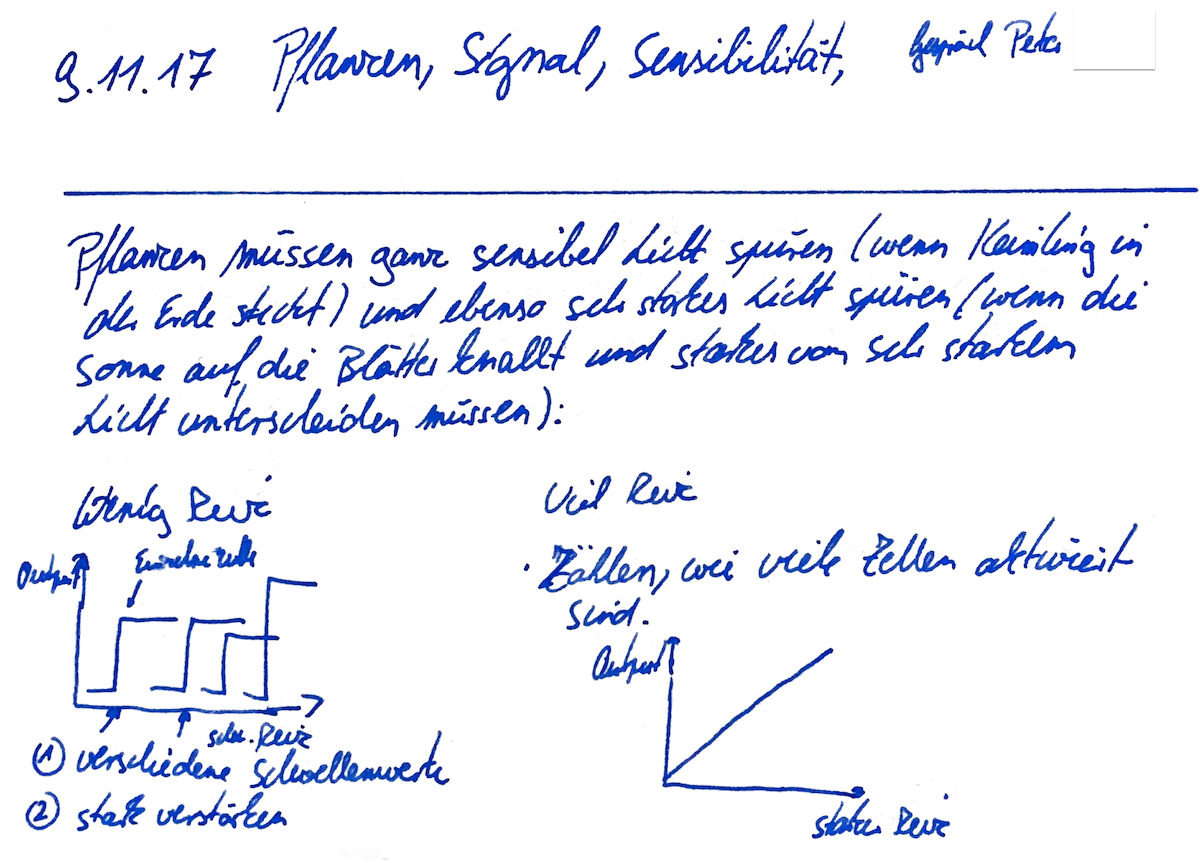 9.11.17 Pflanzen, Signal, Sensibilität, Gespräch Peter
Pflanzen müssen ganz sensibel Licht spüren (wenn Keimling in
der Erde steckt) und ebenso sehr starkes Licht spüren (wenn die
Sonne auf die Blätter knallt und starkes von sehr starkem
Licht unterscheiden müssen):
Wenig Reiz
Output
Einzelne Zelle
schw. Reiz
① verschiedene Schwellenwerte
② stark verstärken
Viel Reiz
· Zählen, wie viele Zellen aktiviert
sind.
Output
starker Reiz